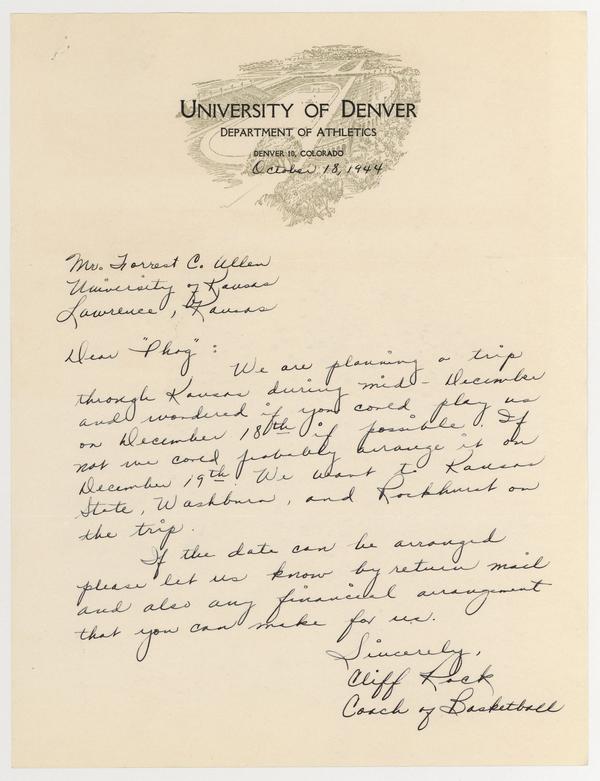 UNIVERSITY OF DENVER
DEPARTMENT OF ATHLETICS
DENVER 10, COLORADO
October 18, 1944
Mr. Forrest C. Allen
University of Kansas
Lawrence, Kansas
Dear "Phog":
We are planning a trip
through Kansas during mid-December
and wondered if you could play us
on December 18th if possible. If
not we could probably arrange it on
December 19th. We want to Kansas
State, Washburn, and Rockhurst on
the trip.
If the date can be arranged
please let us know by return mail
and also any financial arrangement
that you can make for us.
Sincerely,
Cliff Rock
Coach of Basketball